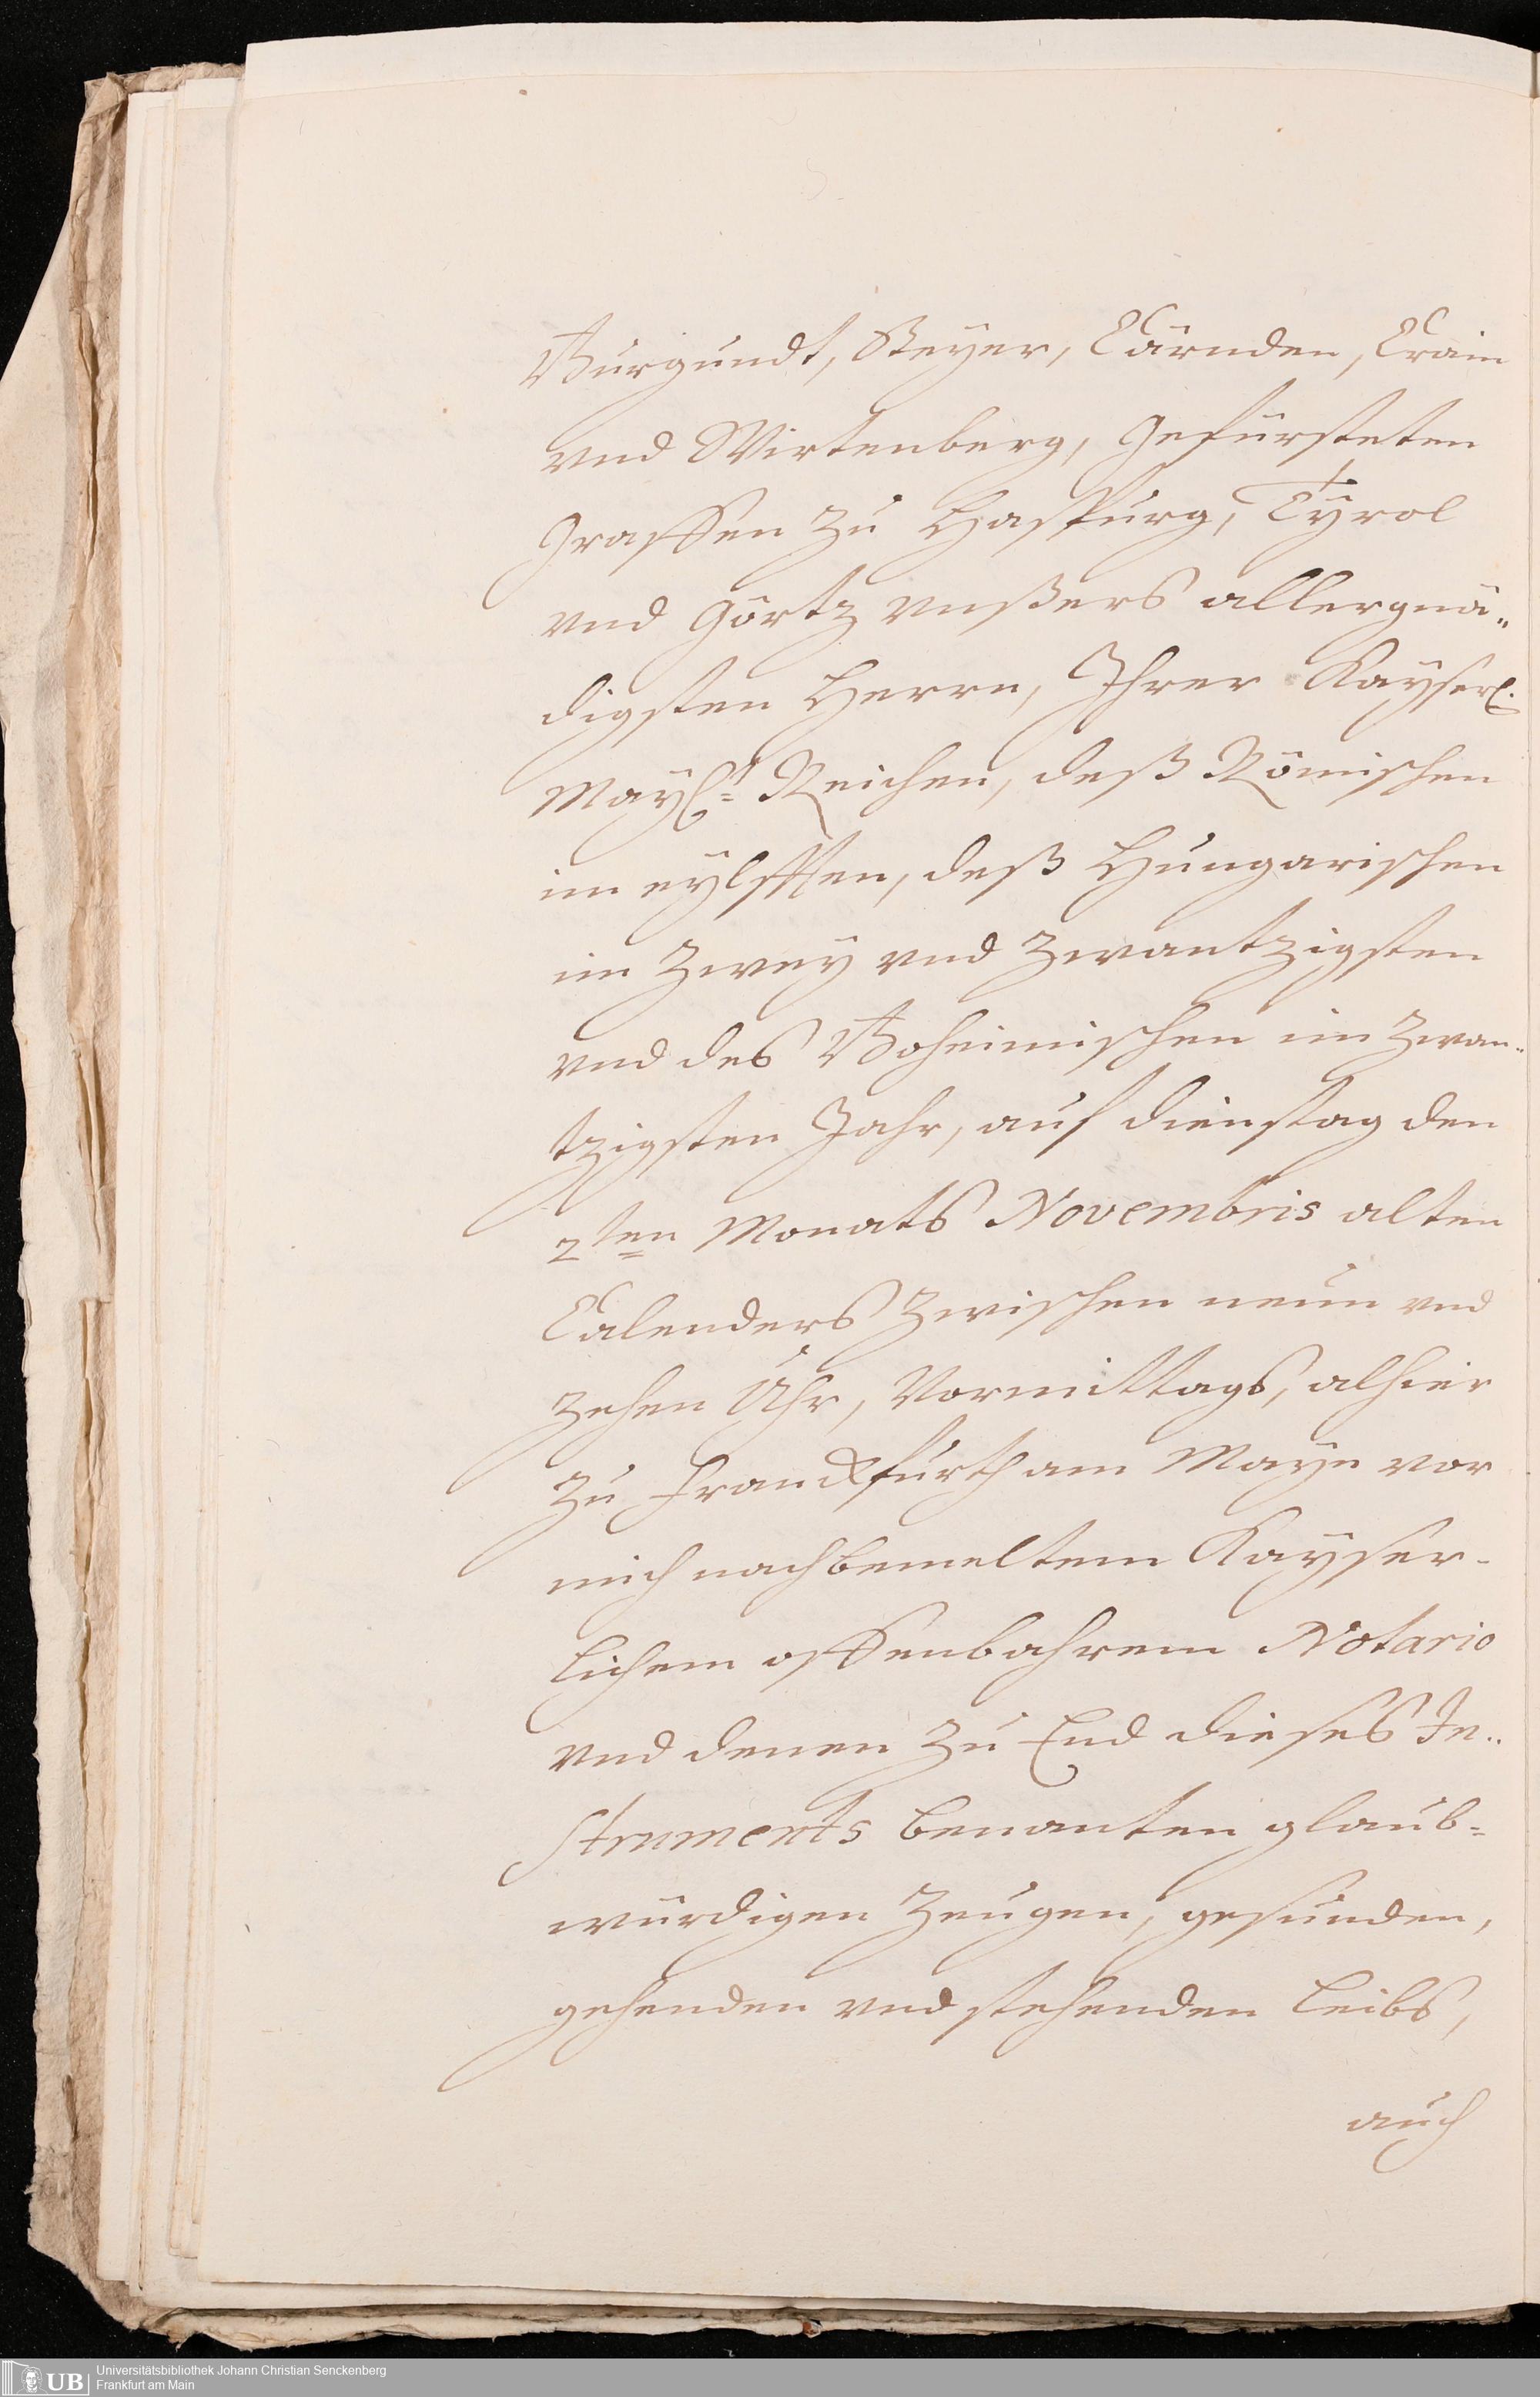 Burgundt, Steyer, Cärnden, Crain
vnd Wirtenberg, Gefürsteten
Graffen zu Haspurg, Tyrol
vnd Görtz vnßers allergnä„
digsten Herrn, Ihrer Kayserl.
Mayst. Reichen, deß Römischen
im eylfften, deß Hungarischen
im Zwey vnd Zwantzigsten
vnd des Boheimischen im Zwan„
tzigsten Jahr, auf dienstag den
2ten Monats Novembris alten
Calenders zwischen neun vnd
zehen Uhr, Vormittags, alhier
zu Franckfurth am Mayn vor
mich nachbemeltem Kayser-
lichem offenbahrem Notario
vnd denen zu End dieses In„
struments benanten glaub=
würdigen Zeugen, gesunden,
gehenden vnd stehenden Leibs,
auch
UB
Universitätsbibliothek Johann Christian Senckenberg
Frankfurt am Main